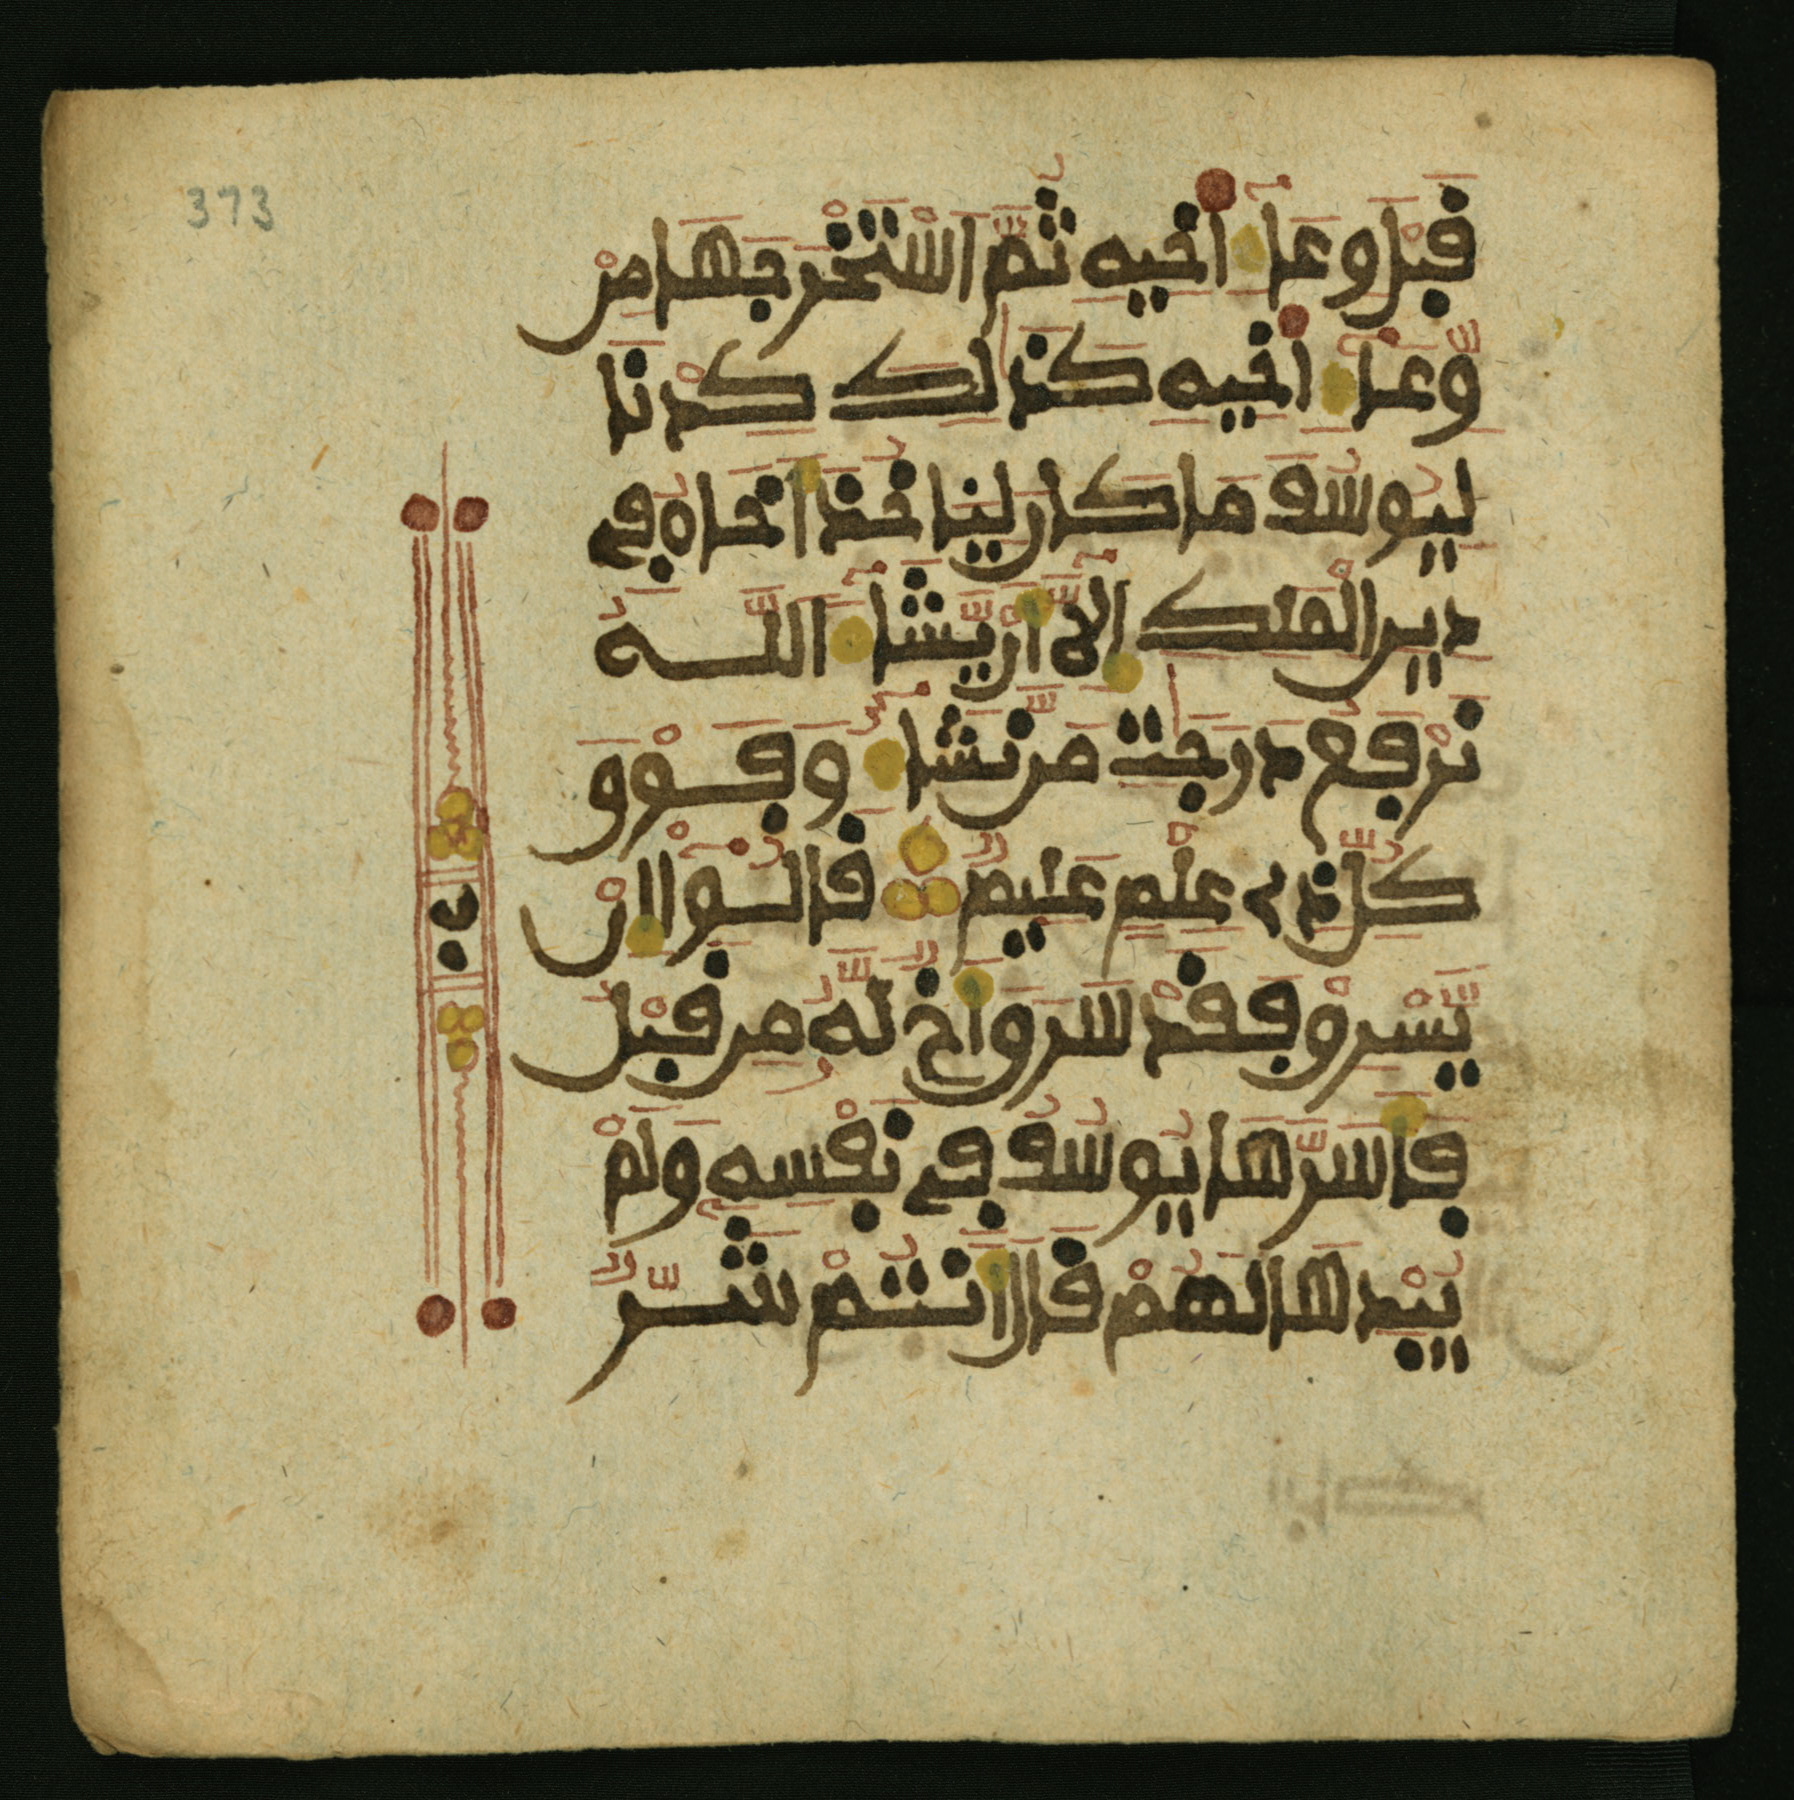 373
قَبْلَ وِعَآءِ اَخِيهِ ثُمَّ اَسْتَخْرَجَهَا مِنْ
وِّعَآءِ اَخِيهِ كَذَٰلِكَ كِدْنَا
لِيُوسُفَ مَا كَانَ لِيَاخُذَ أَخَاهُ فِے
دِينِ اِلْمَلِكِ إِلَّآ أَنْ يَّشَآءَ اَللَّهُ
نَرْفَعُ دَرَجَٰتِ مَن نَّشَآءُ وَفَوْقَ
كُلِّ ذِے عِلْمٍ عَلِيمٌ قَالُوٓا إِنْ
يَّسْرِقْ فَقَدْ سَرَقَ أَخٌ لَّهُ مِن قَبْلُ
فَأَسَرَّهَا يُوسُفُ فِے نَفْسِهِ وَلَمْ
يُبْدِهَا لَهُمْ قَالَ أَنتُمْ شَرٌّ